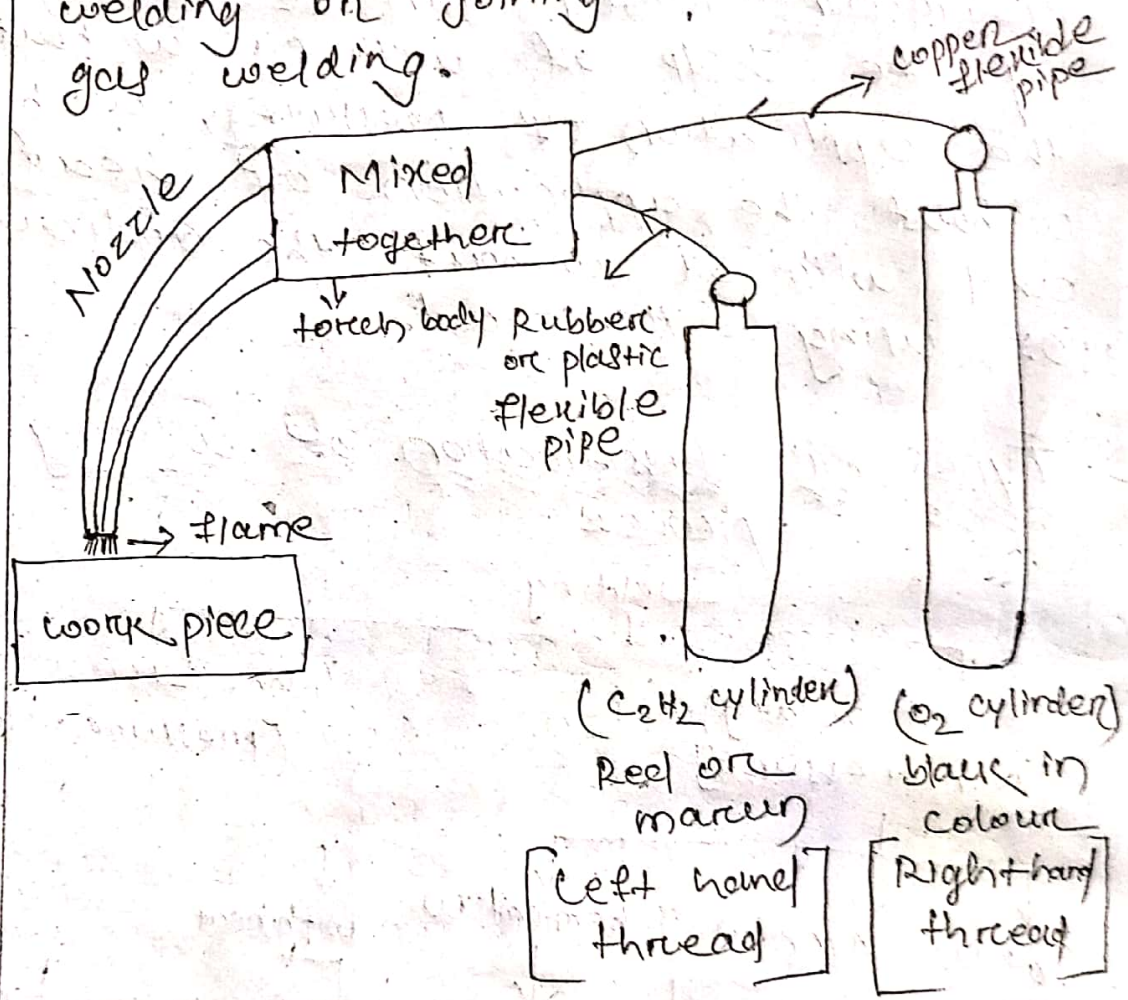 welding or joining
gas welding.
copper
flexible
pipe
Nozzle
Mixed
together
torch body
Rubber
or plastic
flexible
pipe
flame
work piece
(C2H2 cylinder)
Red or
maroun
[Left hand
thread]
(O2 cylinder)
black in
colour
[Right hand
thread]